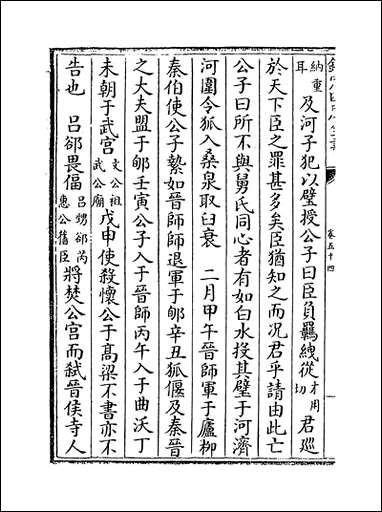 卷五十四
納重耳及河子犯以璧授公子曰臣負羈絏從才用切君巡
於天下臣之罪甚多矣臣猶知之而况君乎請由此亡
公子曰所不與舅氏同心者有如白水投其璧于河濟
河圍令狐入桑泉取臼衰　二月甲午晉師軍于廬柳
秦伯使公子縶如晉師師退軍于郇辛丑狐偃及秦晉
之大夫盟于郇壬寅公子入于晉師丙午入于曲沃丁
未朝于武宫文公祖武公廟戊申使殺懷公于髙梁不書亦不
告也　吕郤畏偪吕甥郤芮惠公舊臣將焚公宫而弑晉侯寺人